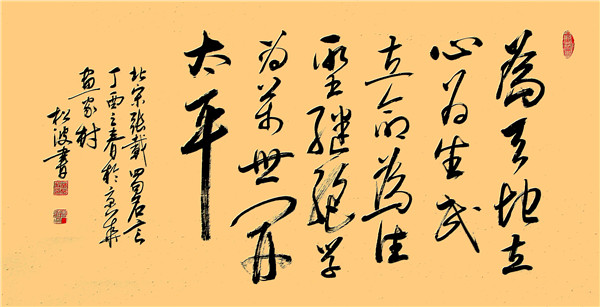 為天地立
心为生民
立命為往
聖继绝学
为萬世開
太平
北宋張載四句名言
丁酉之春於京東
画家村
松波書